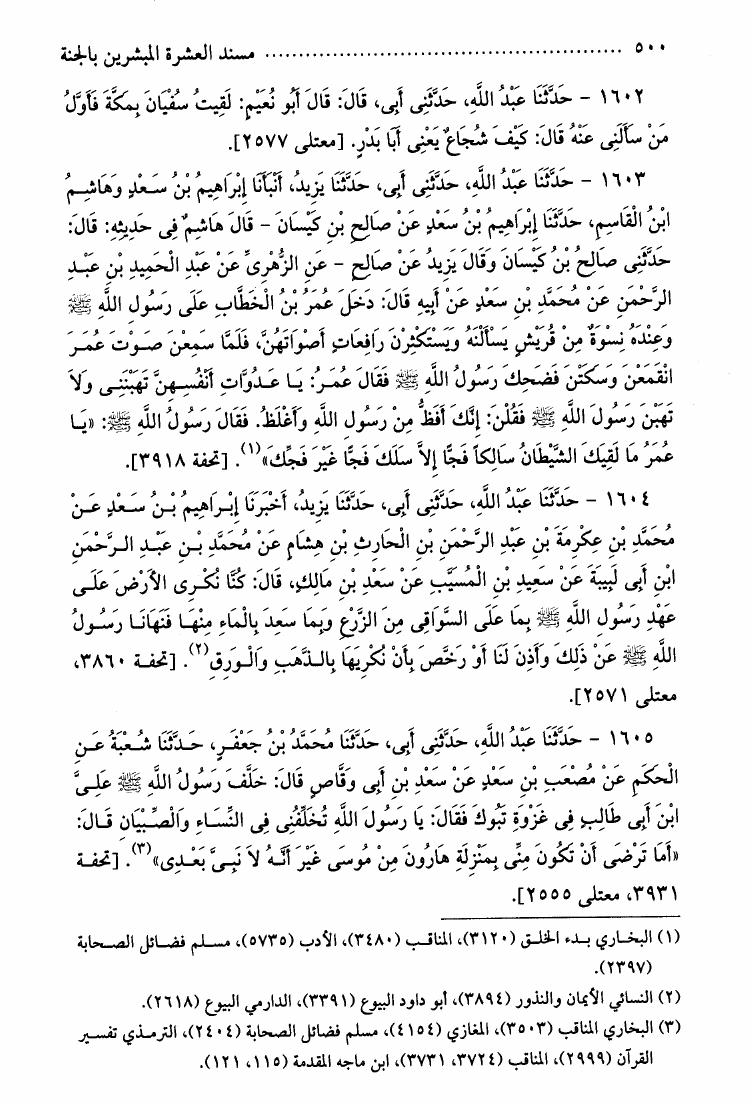 ٥٠٠ ........................................ مسند العشرة المبشرين بالجنة
١٦٠٢ - حَدَّثَنَا عَبْدُ اللَّهِ، حَدَّثَنِى أَبِى، قَالَ: قَالَ أَبُو نُعَيْمٍ: لَقِيتُ سُفْيَانَ بِمَكَّةَ فَأَوَّلُ
مَنْ سَأَلَنِى عَنْهُ قَالَ: كَيْفَ شُجَاعٌ يَعْنِى أَبَا بَدْرٍ. [معتلى ٢٥٧٧].
١٦٠٣ - حَدَّثَنَا عَبْدُ اللَّهِ، حَدَّثَنِى أَبِى، حَدَّثَنَا يَزِيدُ، أَنْبَأَنَا إِبْرَاهِيمُ بْنُ سَعْدٍ وَهَاشِمُ
ابْنُ الْقَاسِمِ، حَدَّثَنَا إِبْرَاهِيمُ بْنُ سَعْدٍ عَنْ صَالِحِ بْنِ كَيْسَانَ - قَالَ هَاشِمٌ فِى حَدِيثِهِ: قَالَ:
حَدَّثَنِى صَالِحُ بْنُ كَيْسَانَ وَقَالَ يَزِيدُ عَنْ صَالِحٍ - عَنِ الزُّهْرِىِّ عَنْ عَبْدِ الْحَمِيدِ بْنِ عَبْدِ
الرَّحْمَنِ عَنْ مُحَمَّدِ بْنِ سَعْدٍ عَنْ أَبِيهِ قَالَ: دَخَلَ عُمَرُ بْنُ الْخَطَّابِ عَلَى رَسُولِ اللَّهِ ﷺ
وَعِنْدَهُ نِسْوَةٌ مِنْ قُرَيْشٍ يَسْأَلْنَهُ وَيَسْتَكْثِرْنَ رَافِعَاتٍ أَصْوَاتَهُنَّ، فَلَمَّا سَمِعْنَ صَوْتَ عُمَرَ
انْقَمَعْنَ وَسَكَتْنَ فَضَحِكَ رَسُولُ اللَّهِ ﷺ فَقَالَ عُمَرُ: يَا عَدُوَّاتِ أَنْفُسِهِنَّ تَهَبْنَنِى وَلاَ
تَهَبْنَ رَسُولَ اللَّهِ ﷺ فَقُلْنَ: إِنَّكَ أَفَظُّ مِنْ رَسُولِ اللَّهِ وَأَغْلَظُ. فَقَالَ رَسُولُ اللَّهِ ﷺ: «يَا
عُمَرُ مَا لَقِيَكَ الشَّيْطَانُ سَالِكاً فَجًّا إِلاَّ سَلَكَ فَجًّا غَيْرَ فَجِّكَ»(١). [تحفة ٣٩١٨].
١٦٠٤ - حَدَّثَنَا عَبْدُ اللَّهِ، حَدَّثَنِى أَبِى، حَدَّثَنَا يَزِيدُ، أَخْبَرَنَا إِبْرَاهِيمُ بْنُ سَعْدٍ عَنْ
مُحَمَّدِ بْنِ عِكْرِمَةَ بْنِ عَبْدِ الرَّحْمَنِ بْنِ الْحَارِثِ بْنِ هِشَامٍ عَنْ مُحَمَّدِ بْنِ عَبْدِ الرَّحْمَنِ
ابْنِ أَبِى لَبِيبَةَ عَنْ سَعِيدِ بْنِ الْمُسَيَّبِ عَنْ سَعْدِ بْنِ مَالِكٍ، قَالَ: كُنَّا نُكْرِى الأَرْضَ عَلَى
عَهْدِ رَسُولِ اللَّهِ ﷺ بِمَا عَلَى السَّوَاقِى مِنَ الزَّرْعِ وَبِمَا سَعِدَ بِالْمَاءِ مِنْهَا فَنَهَانَا رَسُولُ
اللَّهِ ﷺ عَنْ ذَلِكَ وَأَذِنَ لَنَا أَوْ رَخَّصَ بِأَنْ نُكْرِيَهَا بِالذَّهَبِ وَالْوَرِقِ(٢). [تحفة ٣٨٦٠،
معتلى ٢٥٧١].
١٦٠٥ - حَدَّثَنَا عَبْدُ اللَّهِ، حَدَّثَنِى أَبِى، حَدَّثَنَا مُحَمَّدُ بْنُ جَعْفَرٍ، حَدَّثَنَا شُعْبَةُ عَنِ
الْحَكَمِ عَنْ مُصْعَبِ بْنِ سَعْدٍ عَنْ سَعْدِ بْنِ أَبِى وَقَّاصٍ قَالَ: خَلَّفَ رَسُولُ اللَّهِ ﷺ عَلِىَّ
ابْنَ أَبِى طَالِبٍ فِى غَزْوَةِ تَبُوكَ فَقَالَ: يَا رَسُولَ اللَّهِ تُخَلِّفُنِى فِى النِّسَاءِ وَالصِّبْيَانِ قَالَ:
«أَمَا تَرْضَى أَنْ تَكُونَ مِنِّى بِمَنْزِلَةِ هَارُونَ مِنْ مُوسَى غَيْرَ أَنَّهُ لاَ نَبِىَّ بَعْدِى»(٣). [تحفة
٣٩٣١، معتلى ٢٥٥٥].
(١) البخاري بدء الخلق (٣١٢٠)، المناقب (٣٤٨٠)، الأدب (٥٧٣٥)، مسلم فضائل الصحابة
(٢٣٩٧).
(٢) النسائي الأيمان والنذور (٣٨٩٤)، أبو داود البيوع (٣٣٩١)، الدارمي البيوع (٢٦١٨).
(٣) البخاري المناقب (٣٥٠٣)، المغازي (٤١٥٤)، مسلم فضائل الصحابة (٢٤٠٤)، الترمذي تفسير
القرآن (٢٩٩٩)، المناقب (٣٧٢٤، ٣٧٣١)، ابن ماجه المقدمة (١١٥، ١٢١).